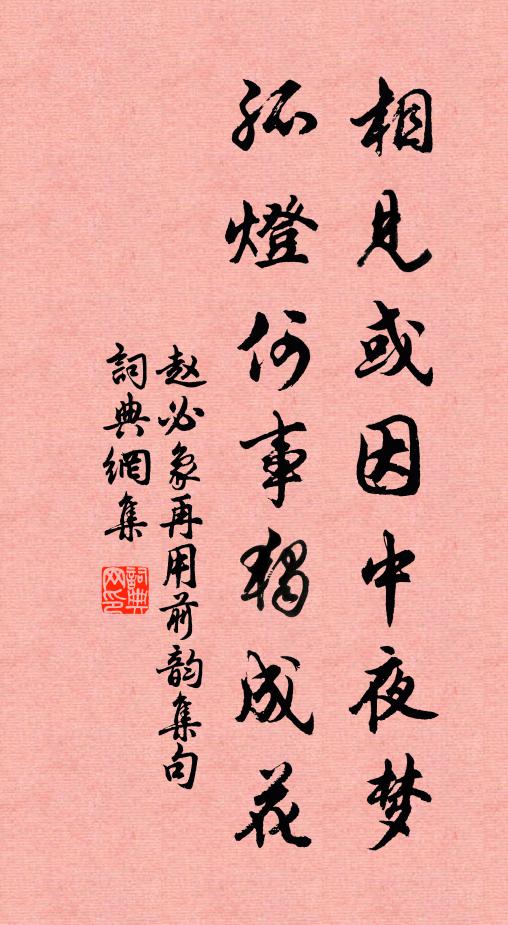 相见或因中夜梦
孤燈何事獨成花
赵必象再用前韵集句
詞典網集
詞典网印